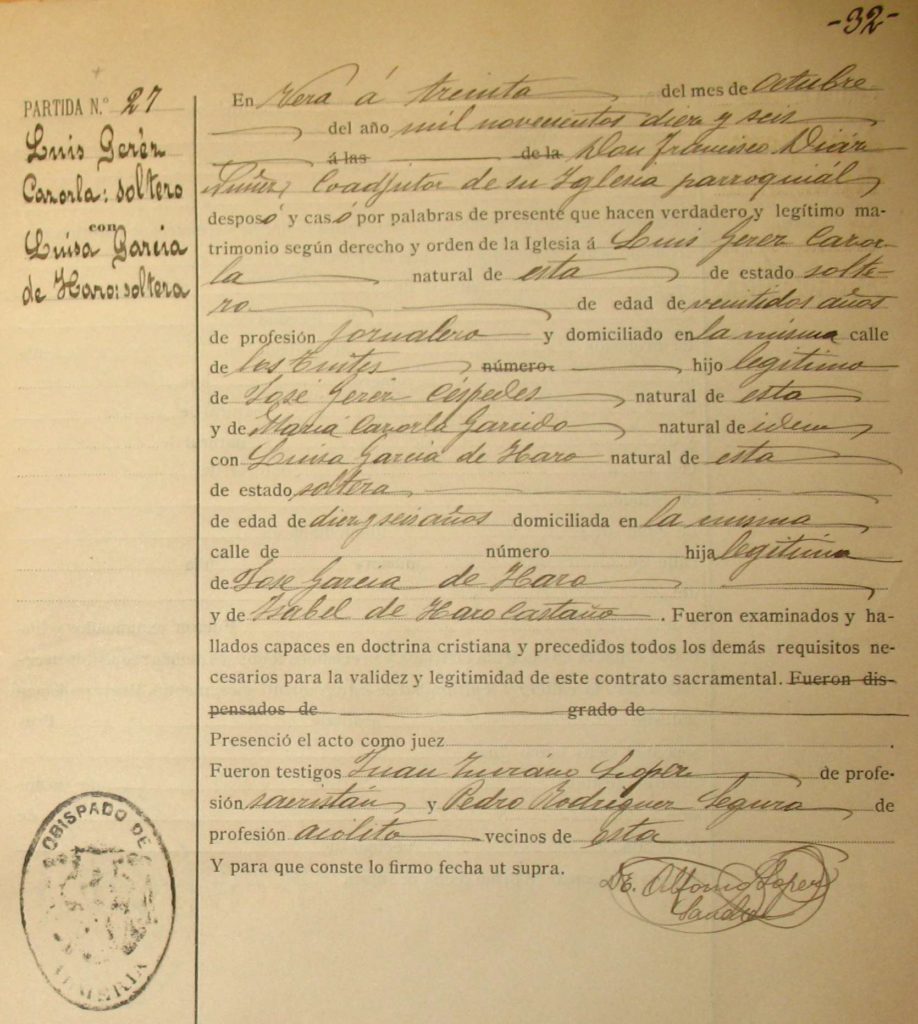 -32-
PARTIDA N.º 27
Luis Gerez
Cazorla: soltero
con
Luisa Garcia
de Haro: soltera
En Vera á treinta del mes de Octubre
del año mil novecientos diez y seis
á las de la Don Francisco Diáz
Coadjutor de su Iglesia parroquiál
desposó y casó por palabras de presente que hacen verdadero y legítimo ma-
trimonio según derecho y orden de la Iglesia á Luis Gerez Cazor-
la natural de esta de estado solte-
ro de edad de veintidos años
de profesión jornalero y domiciliado en la misma calle
de los número hijo legitimo
de José Gerez Céspedes natural de esta
y de Maria Cazorla Garrido natural de idem
con Luisa Garcia de Haro natural de esta
de estado soltera
de edad de diez y seis años domiciliada en la misma
calle de número hija legitima
de Jose Garcia de Haro
y de Isabel de Haro Castaño. Fueron examinados y ha-
llados capaces en doctrina cristiana y precedidos todos los demás requisitos ne-
cesarios para la validez y legitimidad de este contrato sacramental. Fueron dis-
pensados de grado de
Presenció el acto como juez
Fueron testigos Juan Lopez de profe-
sión sacristán y Pedro Rodriguez Segura de
profesión vecinos de esta
Y para que conste lo firmo fecha ut supra.
Alfonso Lopez
OBISPADO DE
ALMERIA